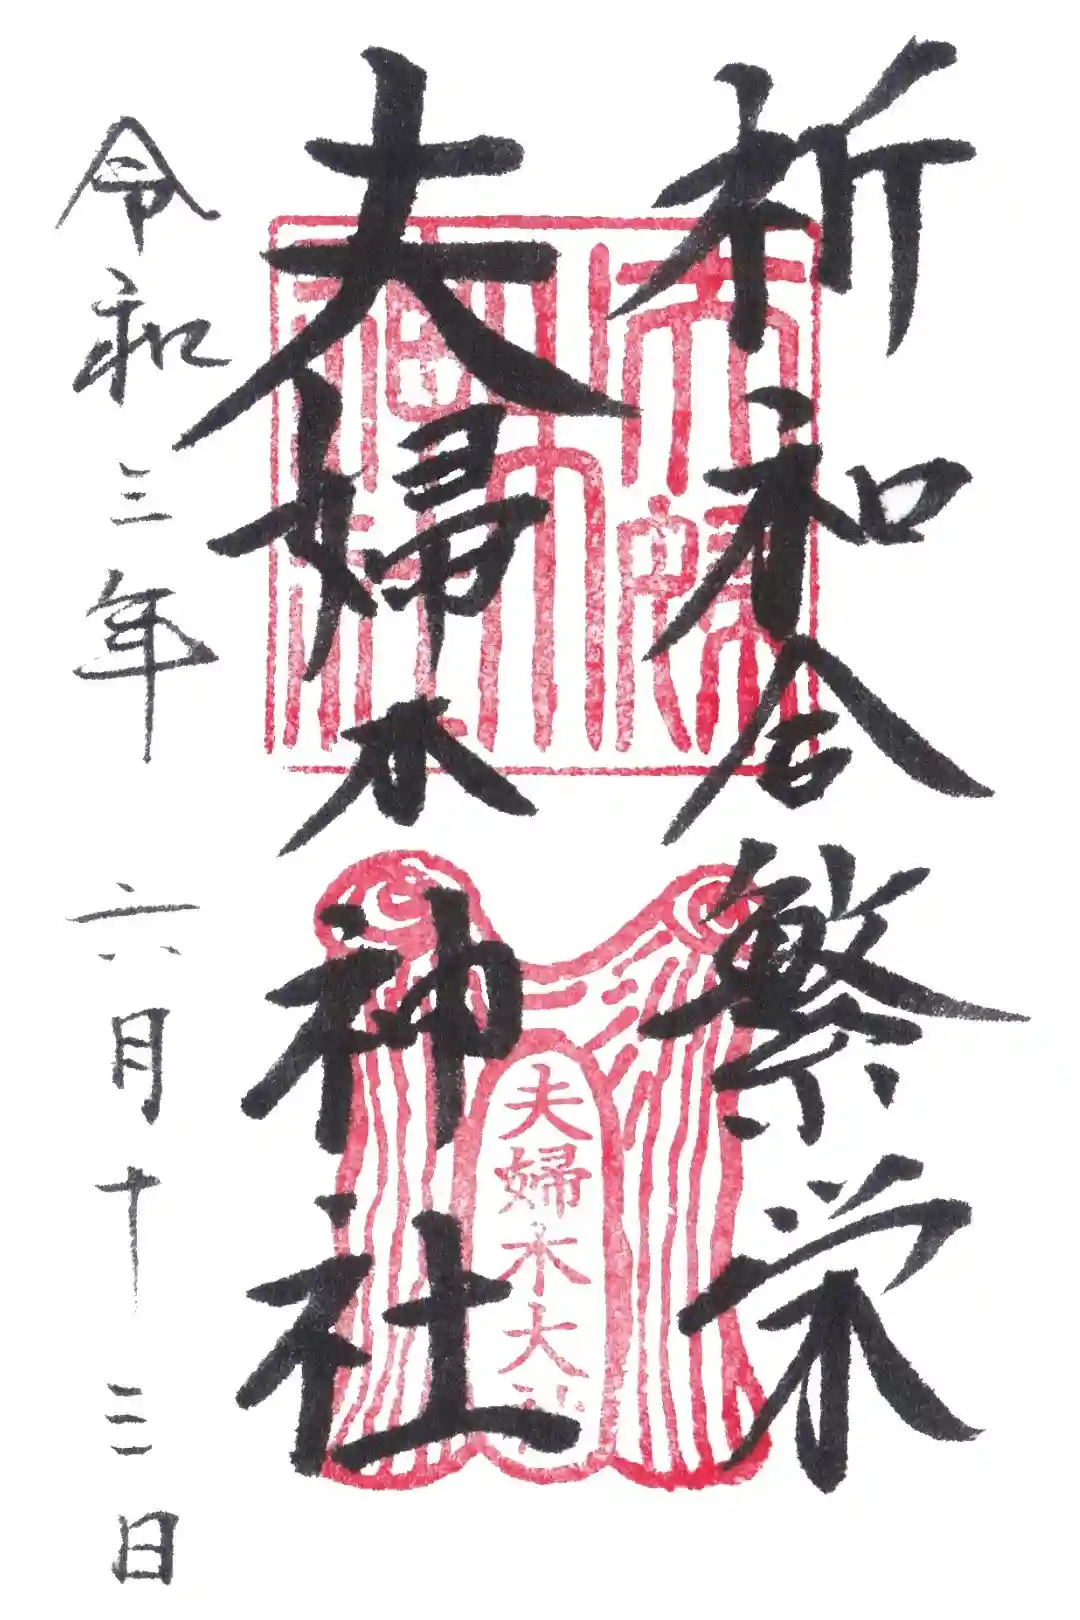 祈和合繁栄
夫婦木神社
令和三年 六月十三日
夫婦木大神